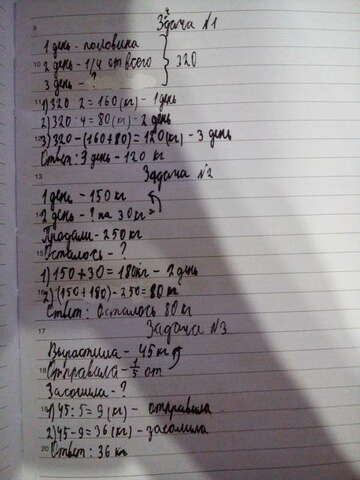 9 Задача №1
1 день - половина
10 2 день - 1/4 от всего } 320
3 день - ?
11 1) 320 : 2 = 160 (кг) - 1 день
2) 320 : 4 = 80 (кг) - 2 день
12 3) 320 - (160+80) = 120 (кг) - 3 день
Ответ: 3 день - 120 кг
13 Задача №2
1 день - 150 кг
14 2 день - ? на 30 кг >
Продали - 250 кг
15 Осталось - ?
1) 150 + 30 = 180 кг - 2 день
16 2) (150 + 180) - 250 = 80 кг
Ответ: Осталось 80 кг
17 Задача №3
Вырастила - 45 кг
18 Отправила - 1/5 от
Засолила - ?
19 1) 45 : 5 = 9 (кг) - отправила
2) 45 - 9 = 36 (кг) - засолила
20 Ответ: 36 кг